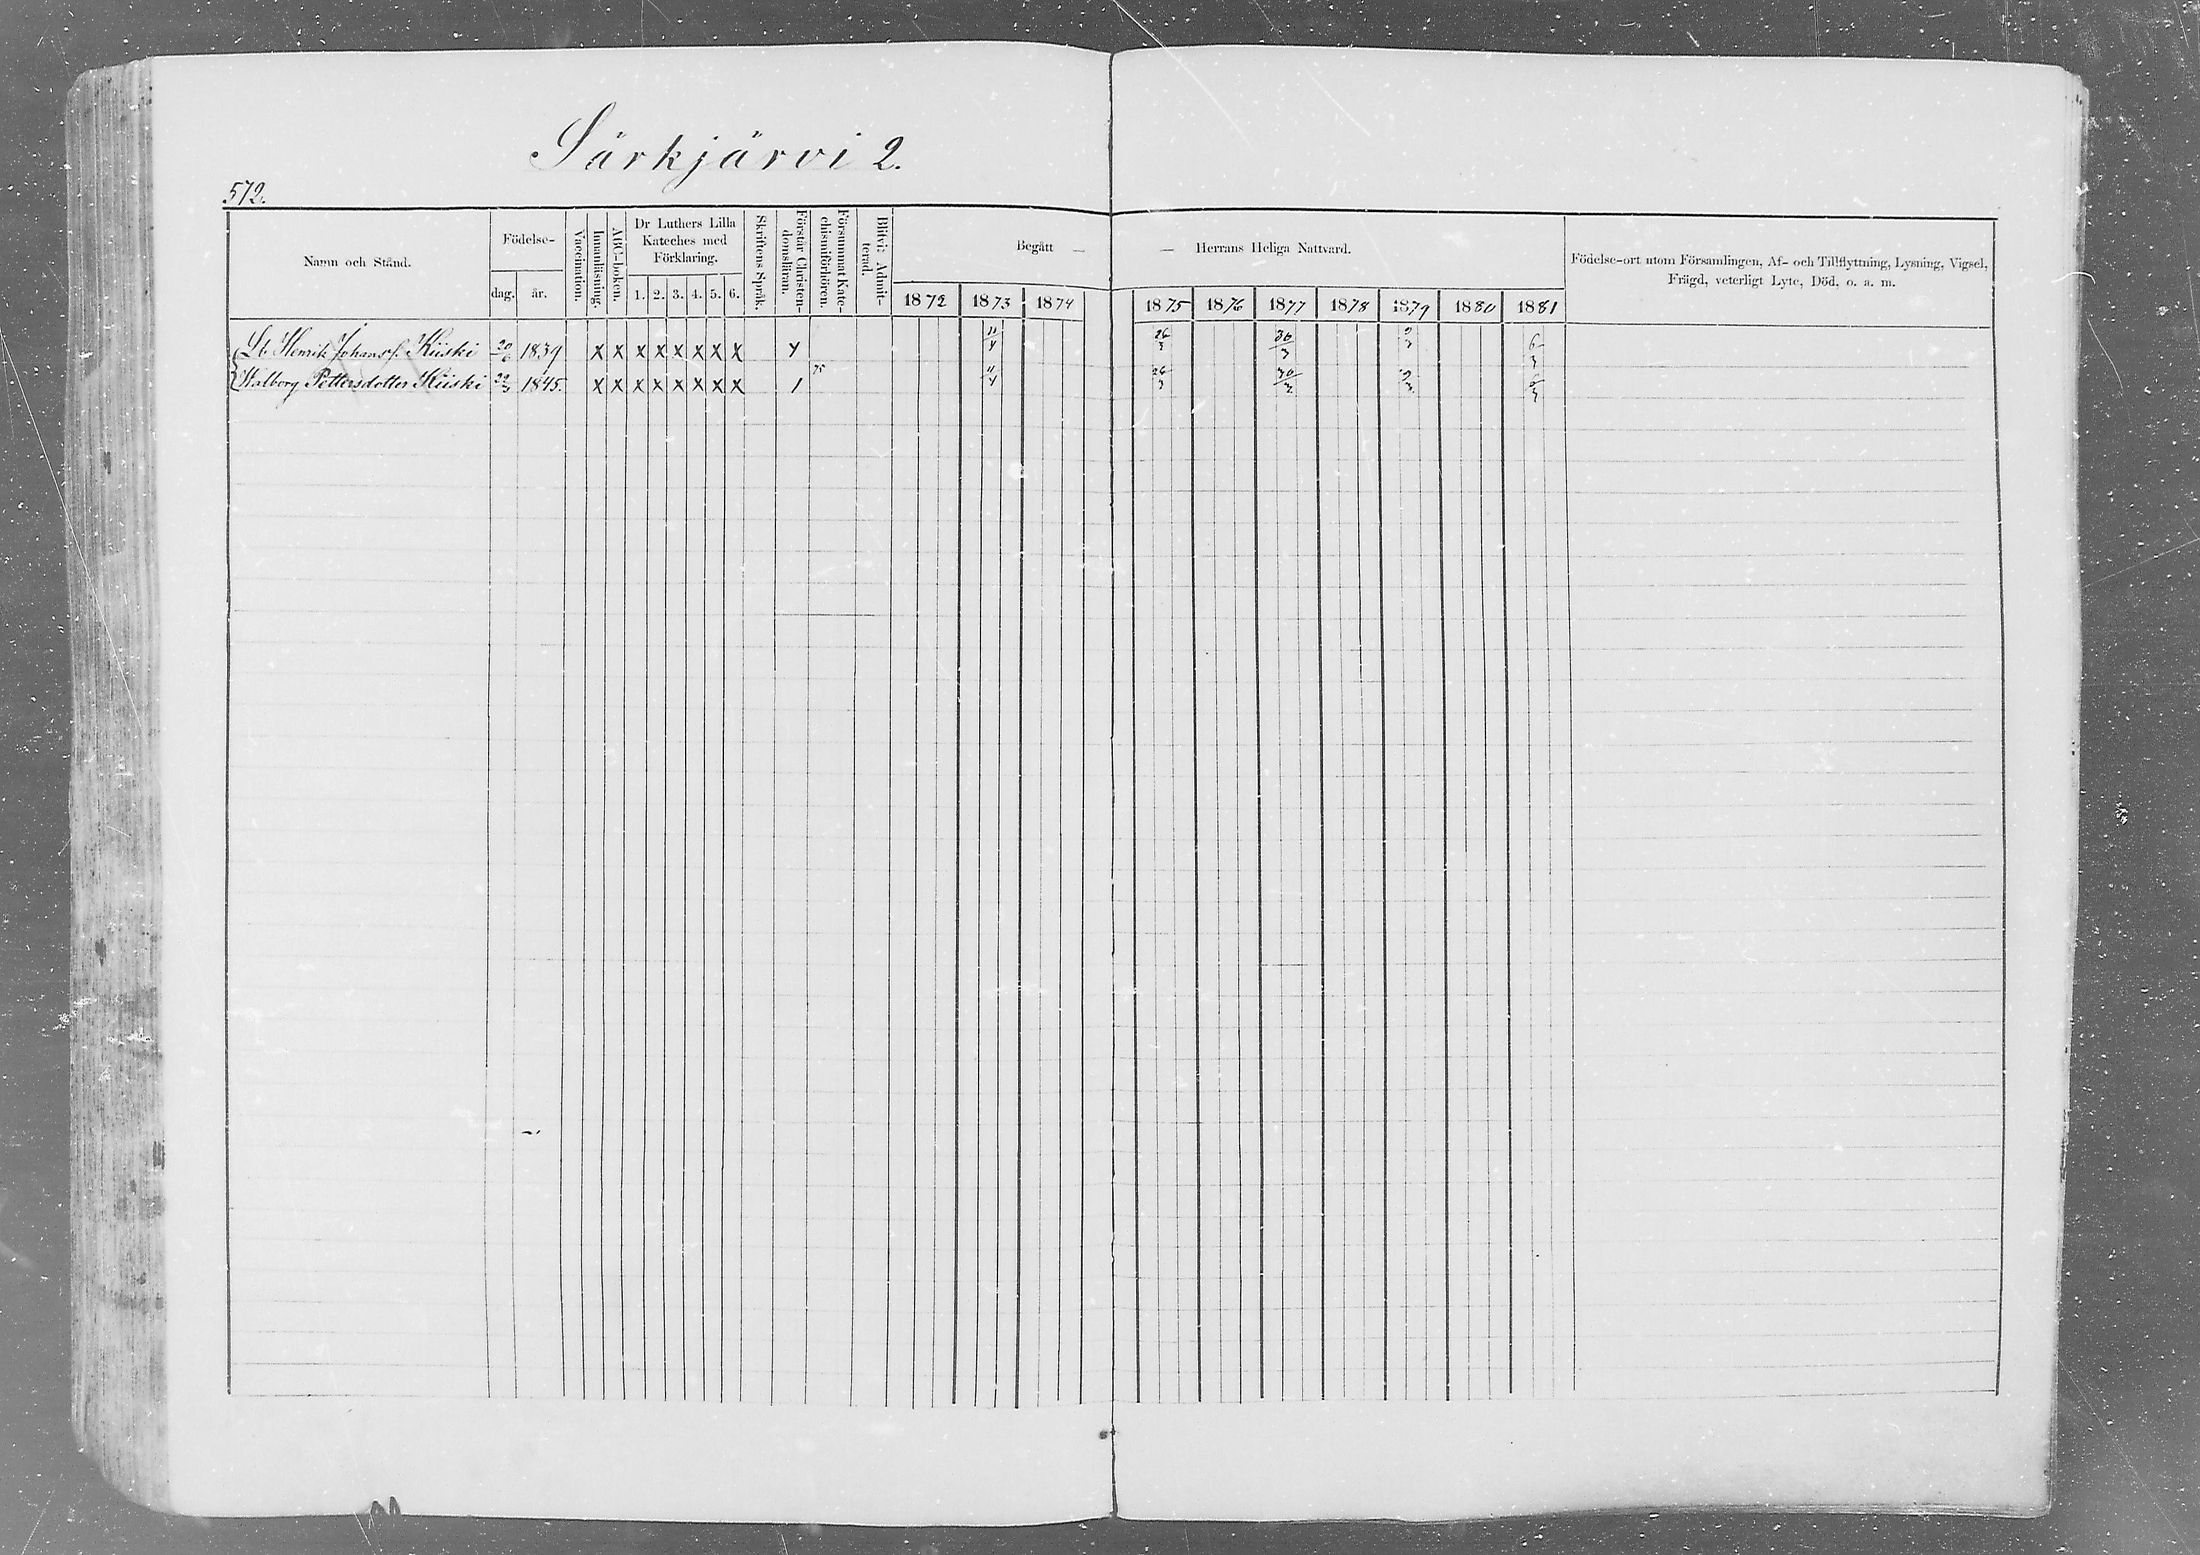 Särkjärvi 2.
572.
Namn och Stånd.
Födelse-
dag.
år.
Vaccination.
Innanläsning.
ABC-boken.
Dr Luthers Lilla
Kateches med
Förklaring.
1. 2. 3. 4. 5. 6.
Skriftens Språk.
Förstår Christen-
domsläran.
Försummat Kate-
chismiförhören.
Blifvit Admit-
terad.
Begått —
— Herrans Heliga Nattvard.
1872 1873 1874 1875 1876 1877 1878 1879 1880 1881
Födelse-ort utom Församlingen, Af- och Tillflyttning, Lysning, Vigsel,
Frägd, veterligt Lyte, Död, o. a. m.
Henrik Johans f. Kiiski 20/6 1839 x x x x x x x x 11/4 26/3 30/3 6/3
Walborg Pettersdotter Kiiski 1845. x x x x x x x x 1 75 11/4 26/3 30/3 6/3